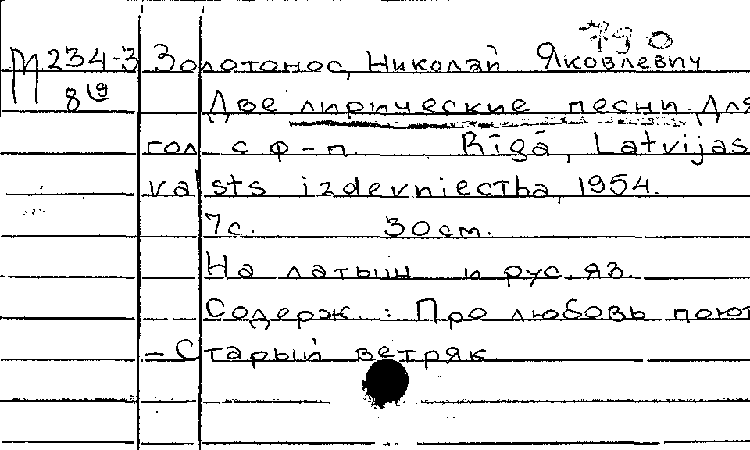 790
М 234-3 Золотонос, Николай Яковлевич
819 Две лирические песни. Для
гол. с ф-п. Rīgā, Latvijas
valsts izdevniecība, 1954.
7с. 30см.
На латыш. и рус. яз.
Содерж.: Про любовь поют
- Старый ветряк